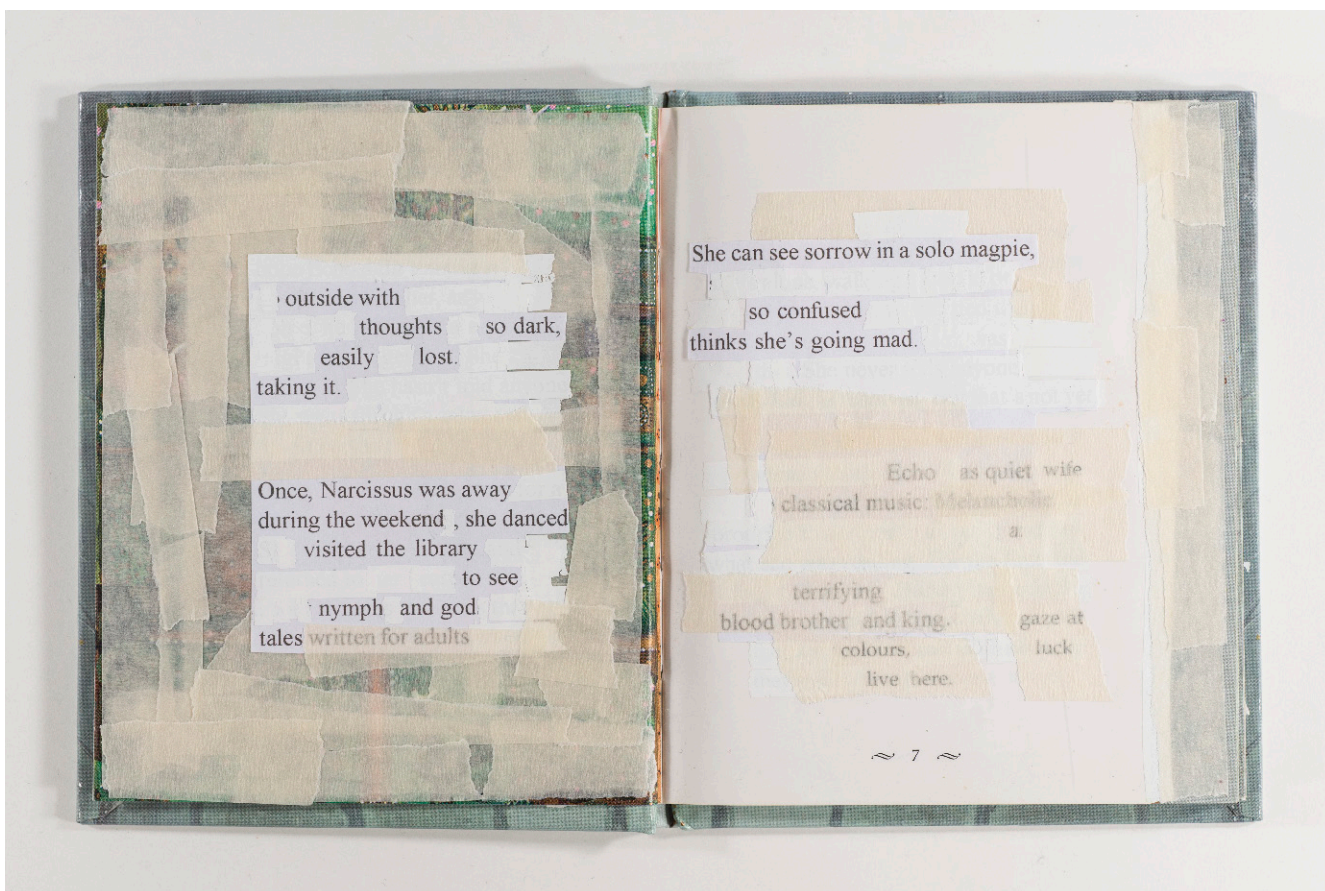 outside with
thoughts so dark,
easily lost.
taking it.
Once, Narcissus was away
during the weekend , she danced
visited the library
to see
nymph and god
tales written for adults
She can see sorrow in a solo magpie,
so confused
thinks she's going mad.
Echo as quiet wife
classical music: Melancholic
a
terrifying
blood brother and king. gaze at
colours, luck
live here.
~ 7 ~